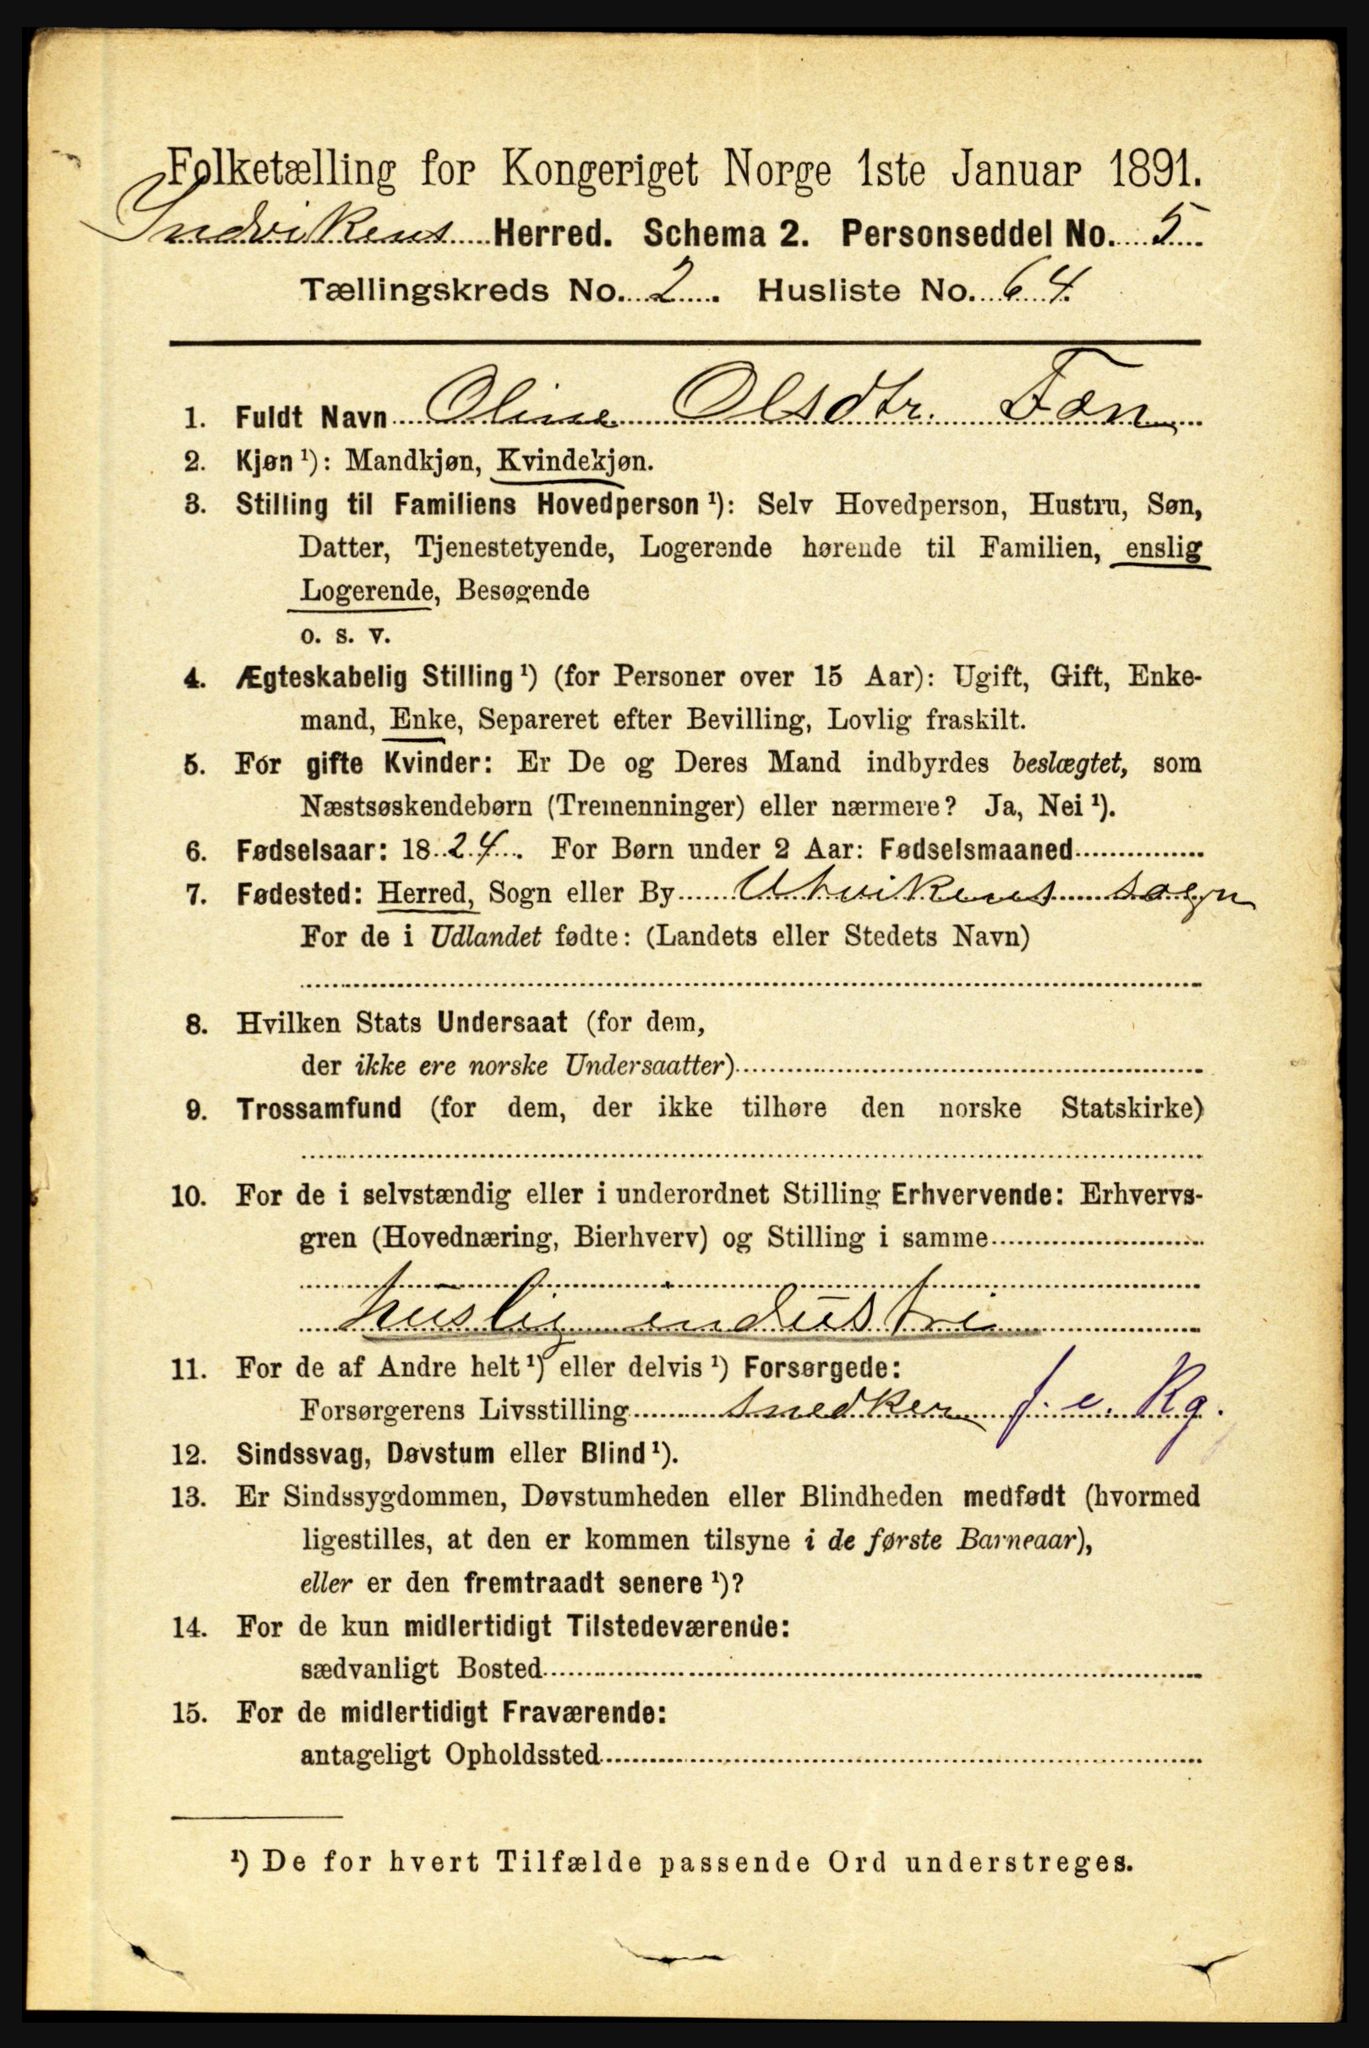 Folketælling for Kongeriget Norge 1ste Januar 1891.
Indvikens Herred. Schema 2. Personseddel No. 5
Tællingskreds No. 2. Husliste No. 64.
1. Fuldt Navn Oline Olsdtr. Fæn
2. Kjøn ¹): Mandkjøn, Kvindekjøn.
3. Stilling til Familiens Hovedperson ¹): Selv Hovedperson, Hustru, Søn,
Datter, Tjenestetyende, Logerende hørende til Familien, enslig
Logerende, Besøgende
o. s. v.
4. Ægteskabelig Stilling ¹) (for Personer over 15 Aar): Ugift, Gift, Enke-
mand, Enke, Separeret efter Bevilling, Lovlig fraskilt.
5. For gifte Kvinder: Er De og Deres Mand indbyrdes beslægtet, som
Næstsøskendebørn (Tremenninger) eller nærmere? Ja, Nei ¹).
6. Fødselsaar: 1824. For Børn under 2 Aar: Fødselsmaaned
7. Fødested: Herred, Sogn eller By Utvikens sogn
For de i Udlandet fødte: (Landets eller Stedets Navn)
8. Hvilken Stats Undersaat (for dem,
der ikke ere norske Undersaatter)
9. Trossamfund (for dem, der ikke tilhøre den norske Statskirke)
10. For de i selvstændig eller i underordnet Stilling Erhvervende: Erhvervs-
gren (Hovednæring, Bierhverv) og Stilling i samme
huslig industri
11. For de af Andre helt ¹) eller delvis ¹) Forsørgede:
Forsørgerens Livsstilling snedker f. e. Kg.
12. Sindssvag, Døvstum eller Blind ¹).
13. Er Sindssygdommen, Døvstumheden eller Blindheden medfødt (hvormed
ligestilles, at den er kommen tilsyne i de første Barneaar),
eller er den fremtraadt senere ¹)?
14. For de kun midlertidigt Tilstedeværende:
sædvanligt Bosted
15. For de midlertidigt Fraværende:
antageligt Opholdssted
¹) De for hvert Tilfælde passende Ord understreges.